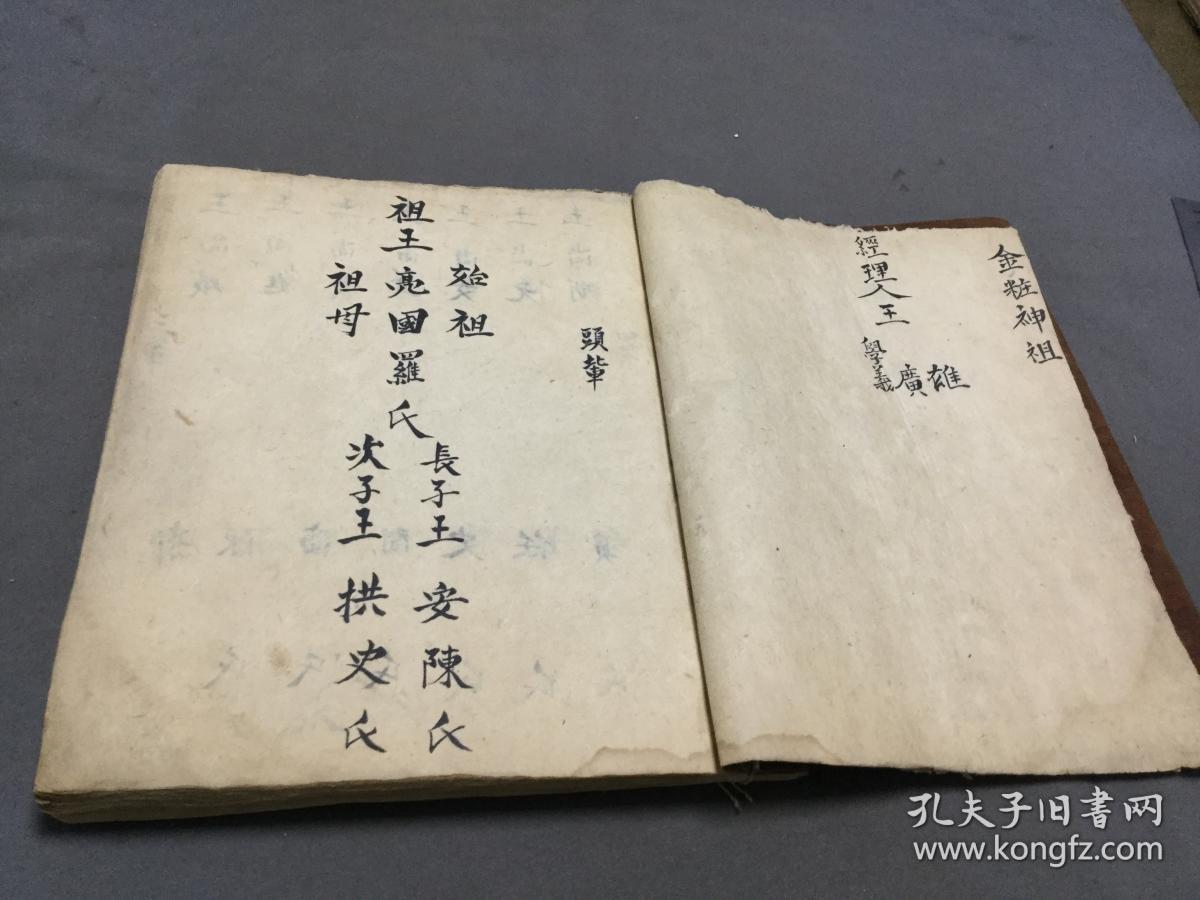 金粧神祖
經理人王
雄
廣
學義
頭輩
始祖
祖王亮國羅氏
祖母
長子王安陳氏
次子王拱史氏
孔夫子旧書网
www.kongfz.com